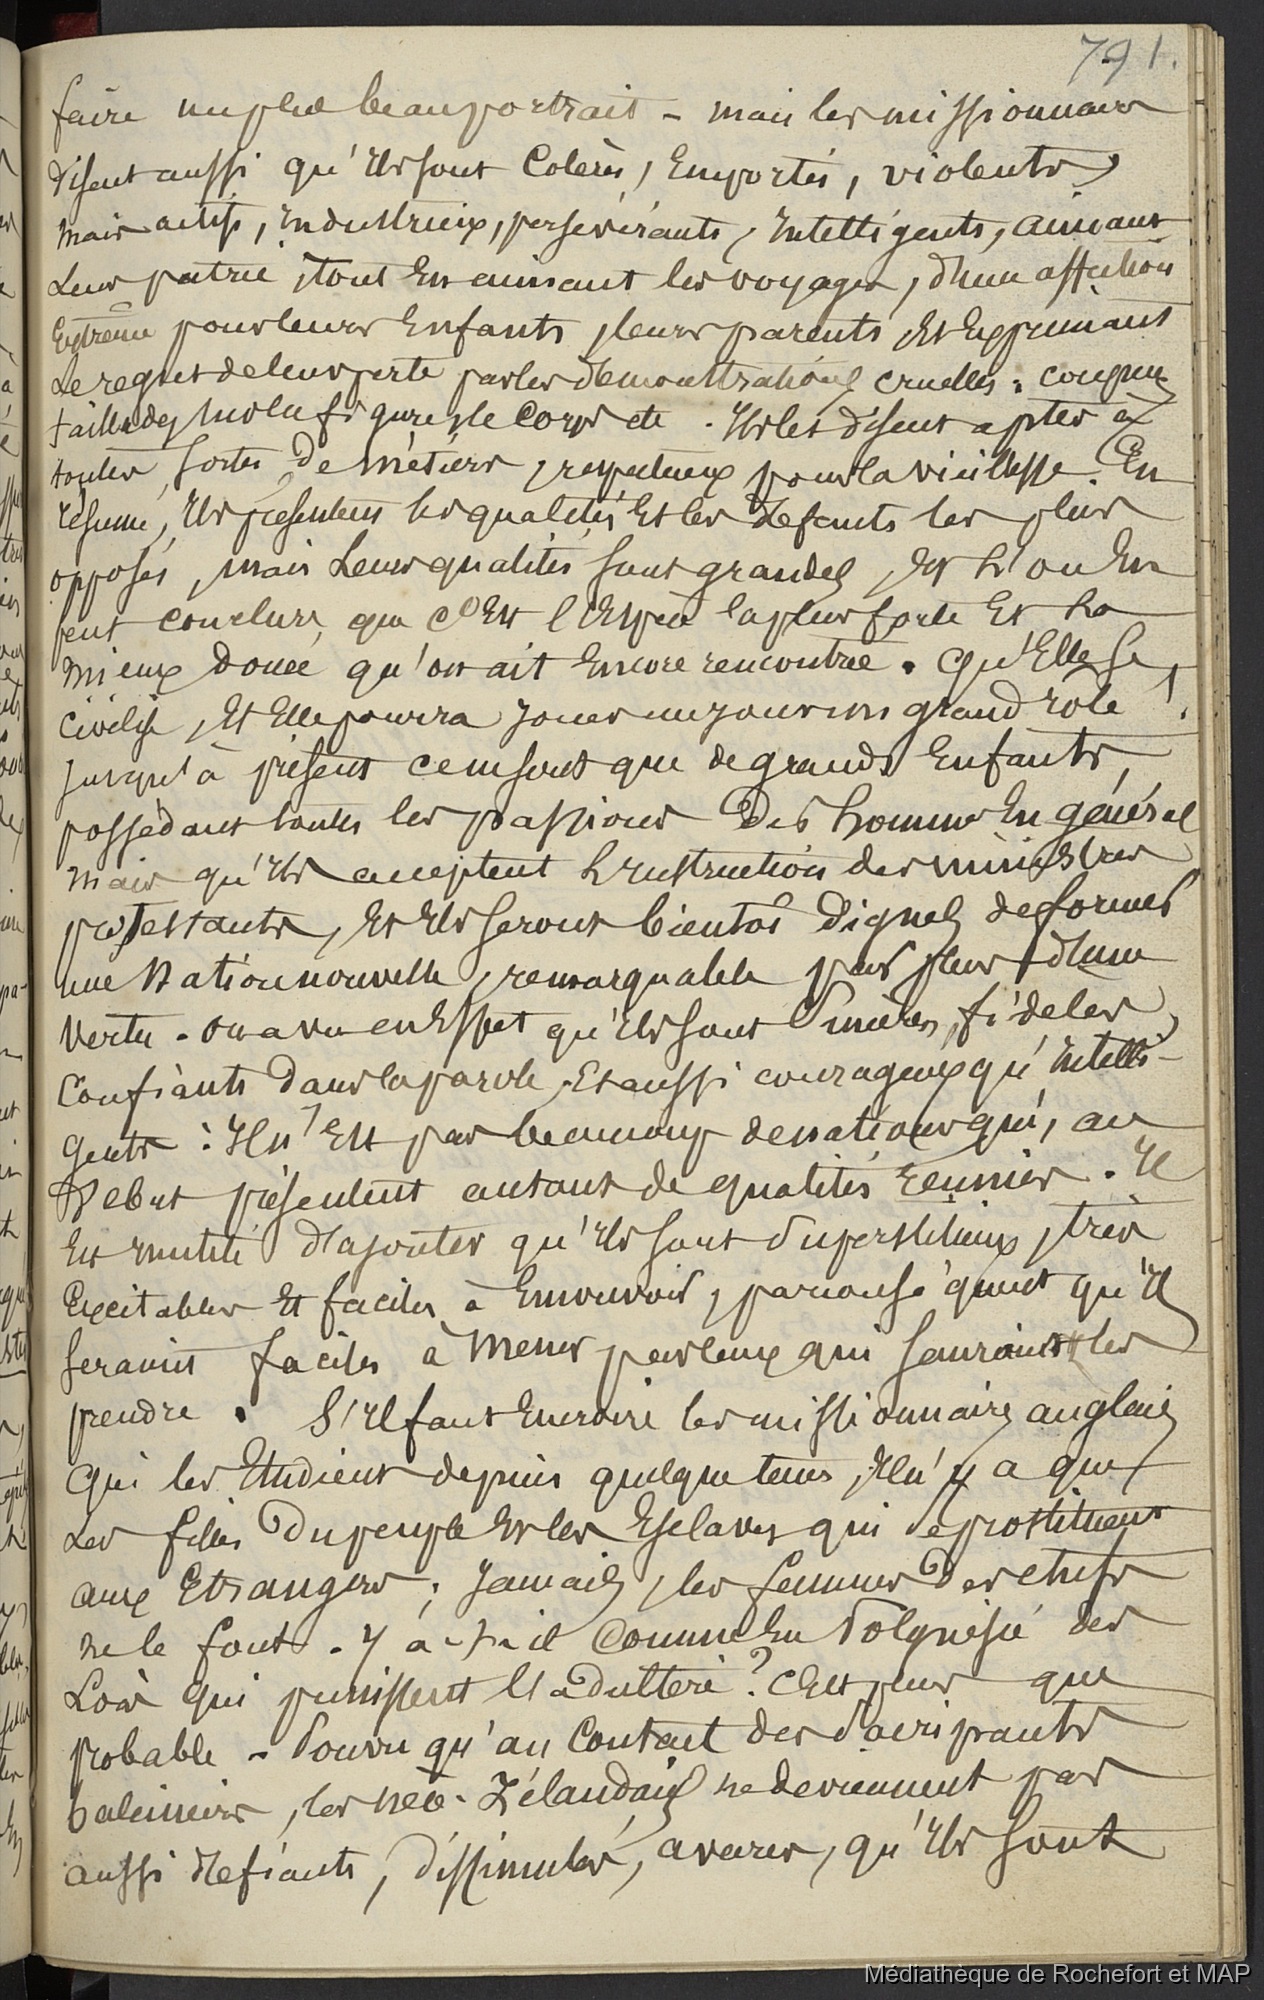 791.
faire un plus beau portrait - mais les missionnaires
disent aussi qu'ils sont colères, emportés, violents,
mais actifs, industrieux, persévérants, intelligents, aimant
leur patrie, tout en aimant les voyages, d'une affection
extrême pour leurs enfants, leurs parents, et exprimant
le regret de leur perte par les démonstrations cruelles : coupures
taillades sur la figure, le corps etc. Ils les disent aptes à
toutes sortes de métiers, respectueux pour la vieillesse. En
résumé, ils présentent les qualités et les défauts les plus
opposés, mais leurs qualités sont grandes, et l'on en
peut conclure que c'est l'espèce la plus forte et la
mieux douée qu'on ait encore rencontrée. Qu'elle se
civilise, et elle pourra jouer un jour un grand rôle !.
Jusqu'à présent ce ne sont que de grands enfants,
possédant toutes les passions des hommes en général
mais qu'ils acceptent l'instruction des ministres
protestants, et ils seront bientôt dignes de former
une nation nouvelle, remarquable par plus d'une
vertu. On a vu en effet qu'ils sont sincères, fidèles,
confiants dans la parole, et aussi courageux qu'intelli-
gents : Il n'est pas beaucoup de nations qui, au
début présentent autant de qualités réunies. Il
est inutile d'ajouter qu'ils sont superstitieux, très
excitables et faciles à émouvoir, par conséquent qu'il
seraient faciles à mener par ceux qui sauraient les
prendre. S'il faut en croire les missionnaires anglais
qui les étudient depuis quelque tems, il n'y a que
les filles du peuple et les esclaves qui se prostituent
aux étrangers ; jamais, les femmes des chefs
ne le font. Y a-t-il comme en Polynésie des
lois qui punissent l'adultère ? C'est plus que
probable - Pourvu qu'au contact des
baleiniers, les néo-Zélandais ne deviennent pas
aussi défiants, dissimulés, avares, qu'ils sont
Médiathèque de Rochefort et MAP